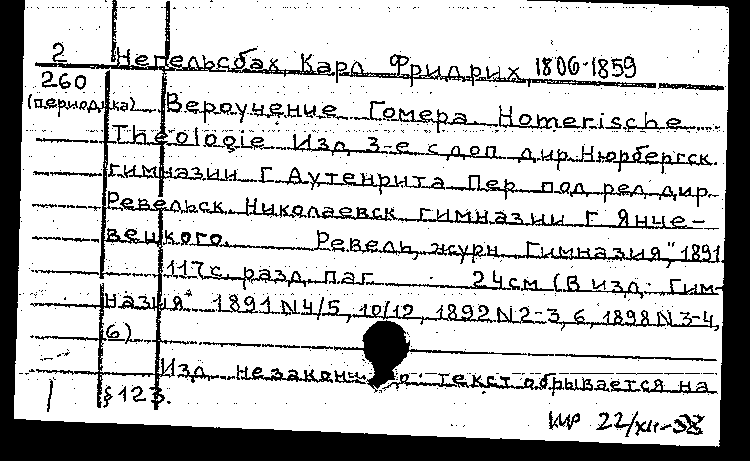 2 Негельсбах, Карл Фридрих, 1806-1859
260
(периодика) Вероучение Гомера Homerische
Theologie Изд 3-е с доп дир. Нюрбергск.
гимназии Г Аутенрита Пер под ред дир.
Ревельск. Николаевск гимназии Г Янче-
вецкого. Ревель, журн Гимназия", 1891
117с. разд паг 24см (В изд: Гим-
назия" 1891 N4/5, 10/12, 1892 N2-3, 6, 1898 N3-4,
6)
Изд незакончено: текст обрывается на
§123.
22/XII-